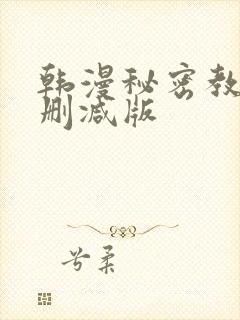 韩漫秘密教
删减版
兮柔